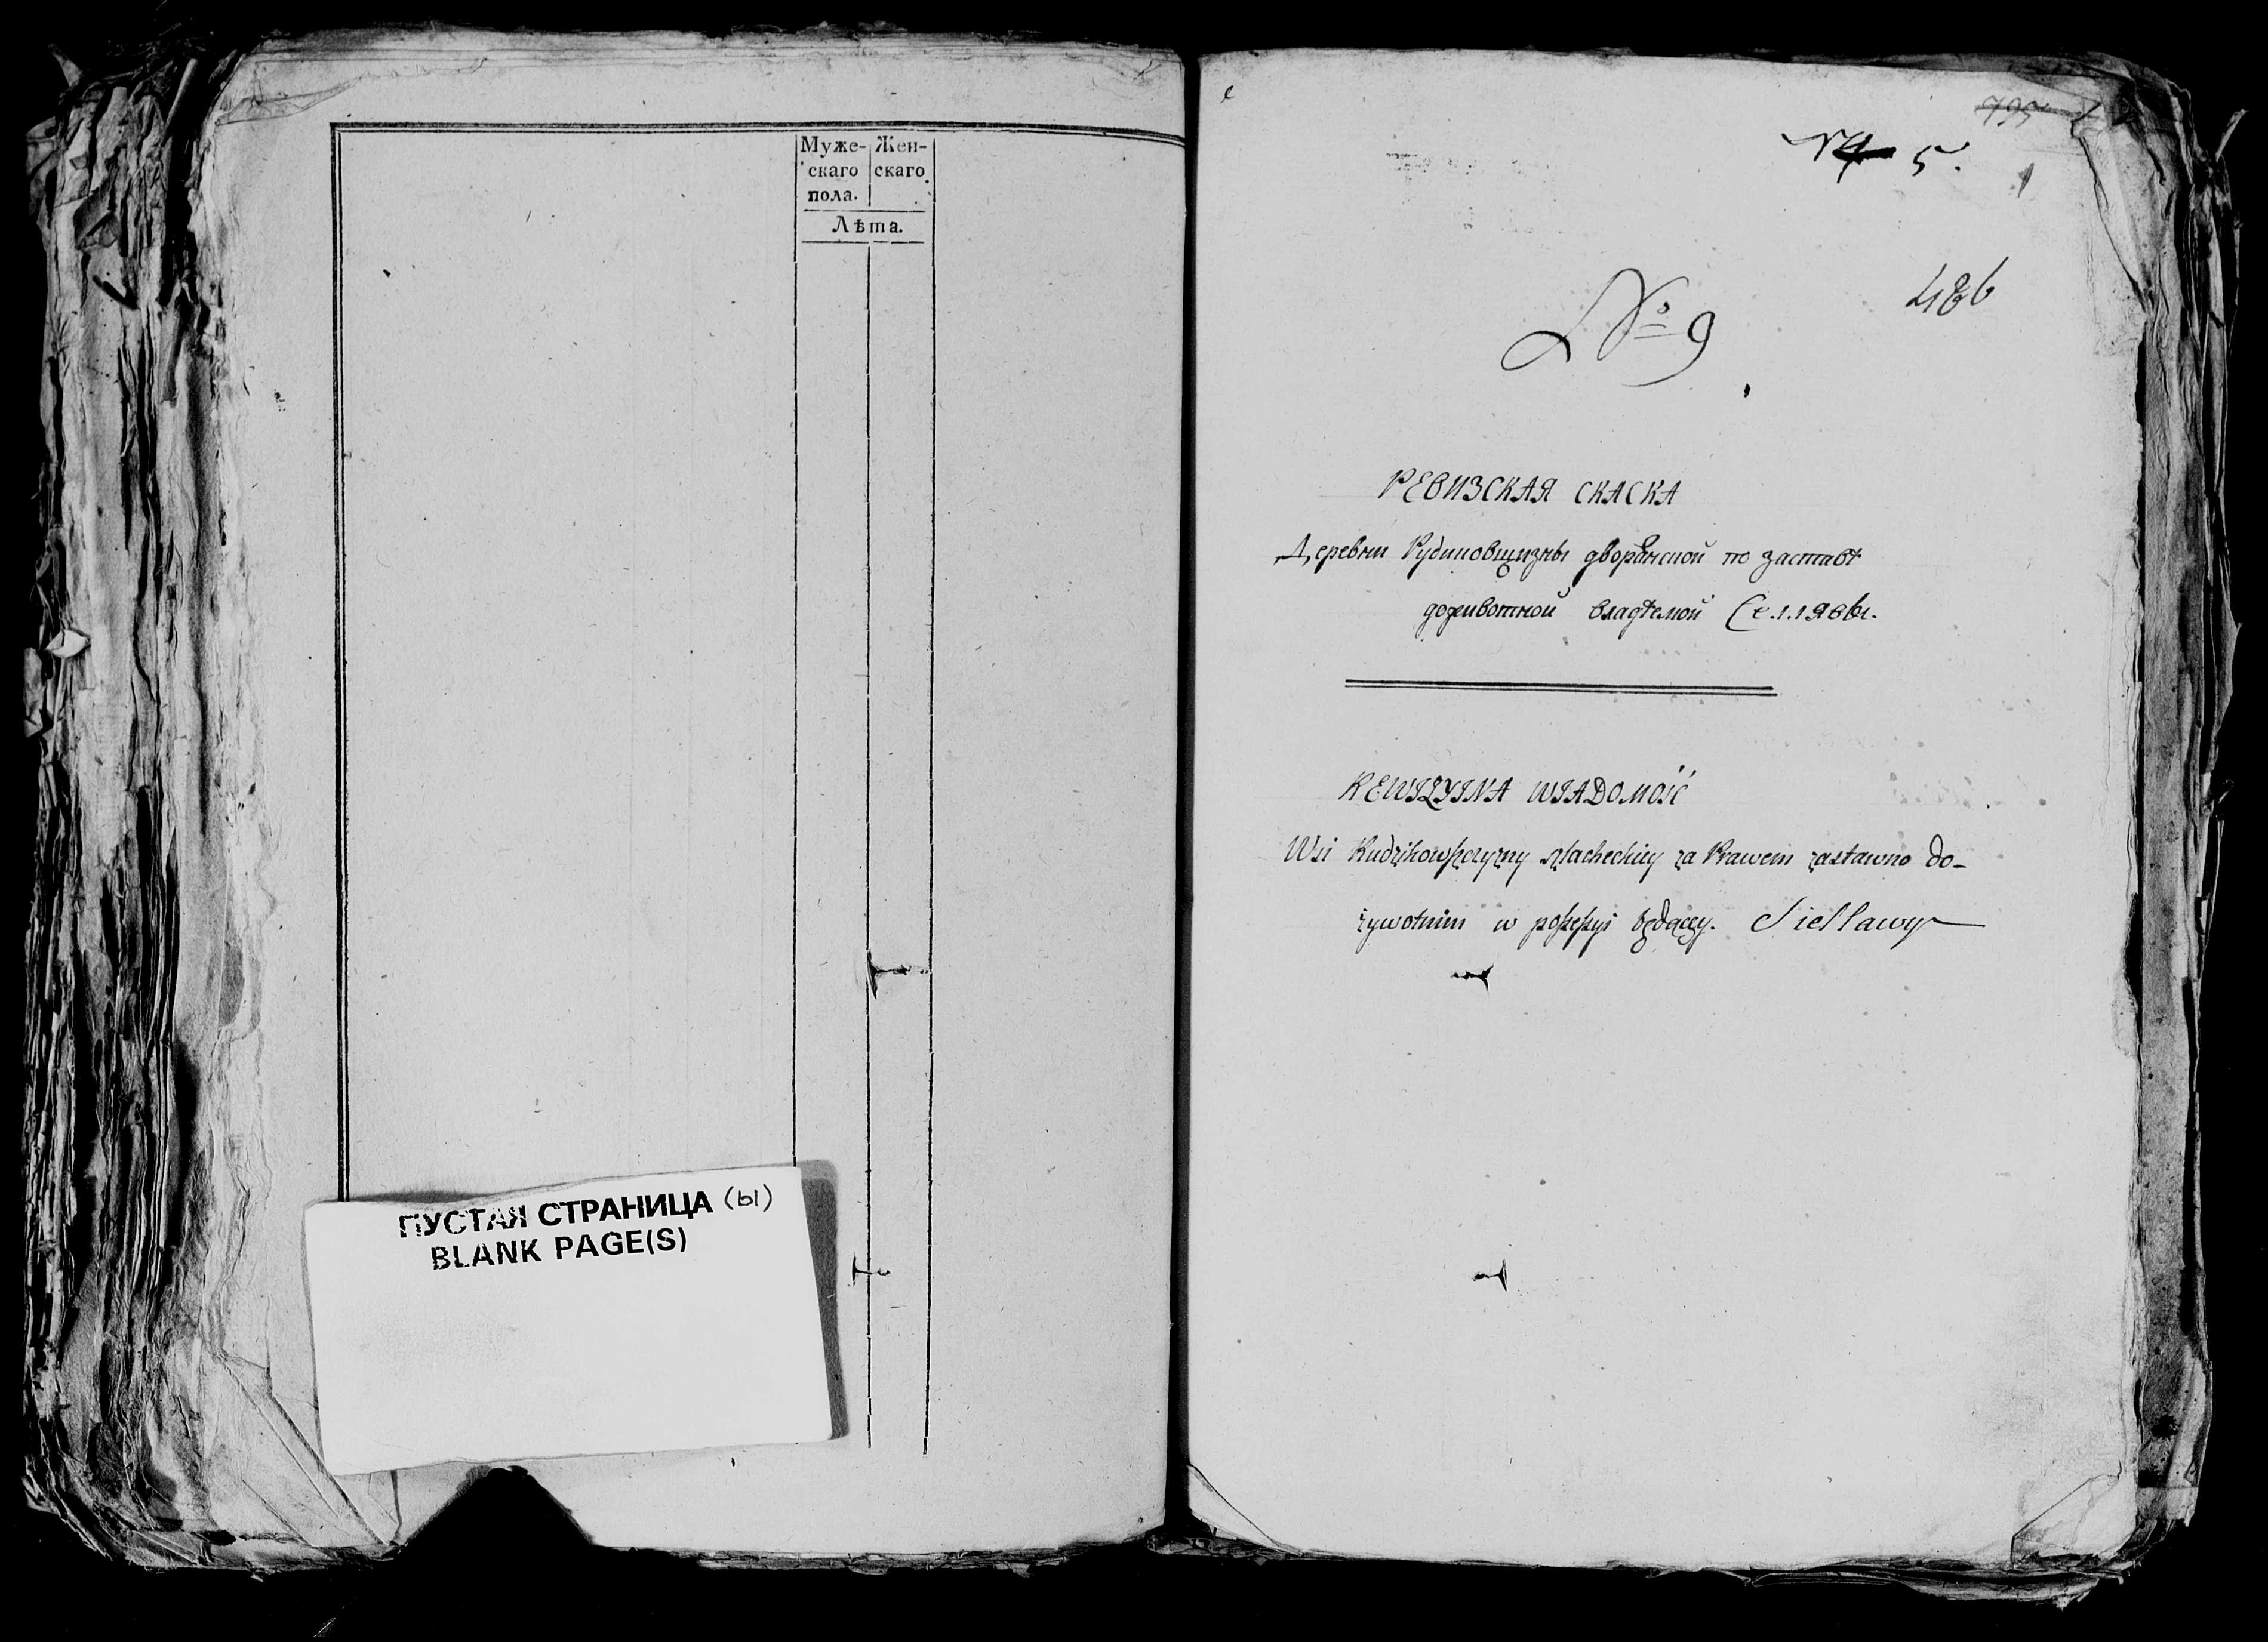 Муже- Жен-
скаго скаго
пола.
Лѣта.
ПУСТАЯ СТРАНИЦА (ы)
BLANK PAGE(S)
5.
№ 9
486
РЕВИЗСКАЯ СКАСКА
Деревни дворянской по заставѣ
доживотной владѣемой
REWIZYINA WIADOMOŚĆ
Wsi Kudzikowszczyzny szlacheckiey za Prawem zastawno do-
żywotnim w possessyi będącey. Siellawy